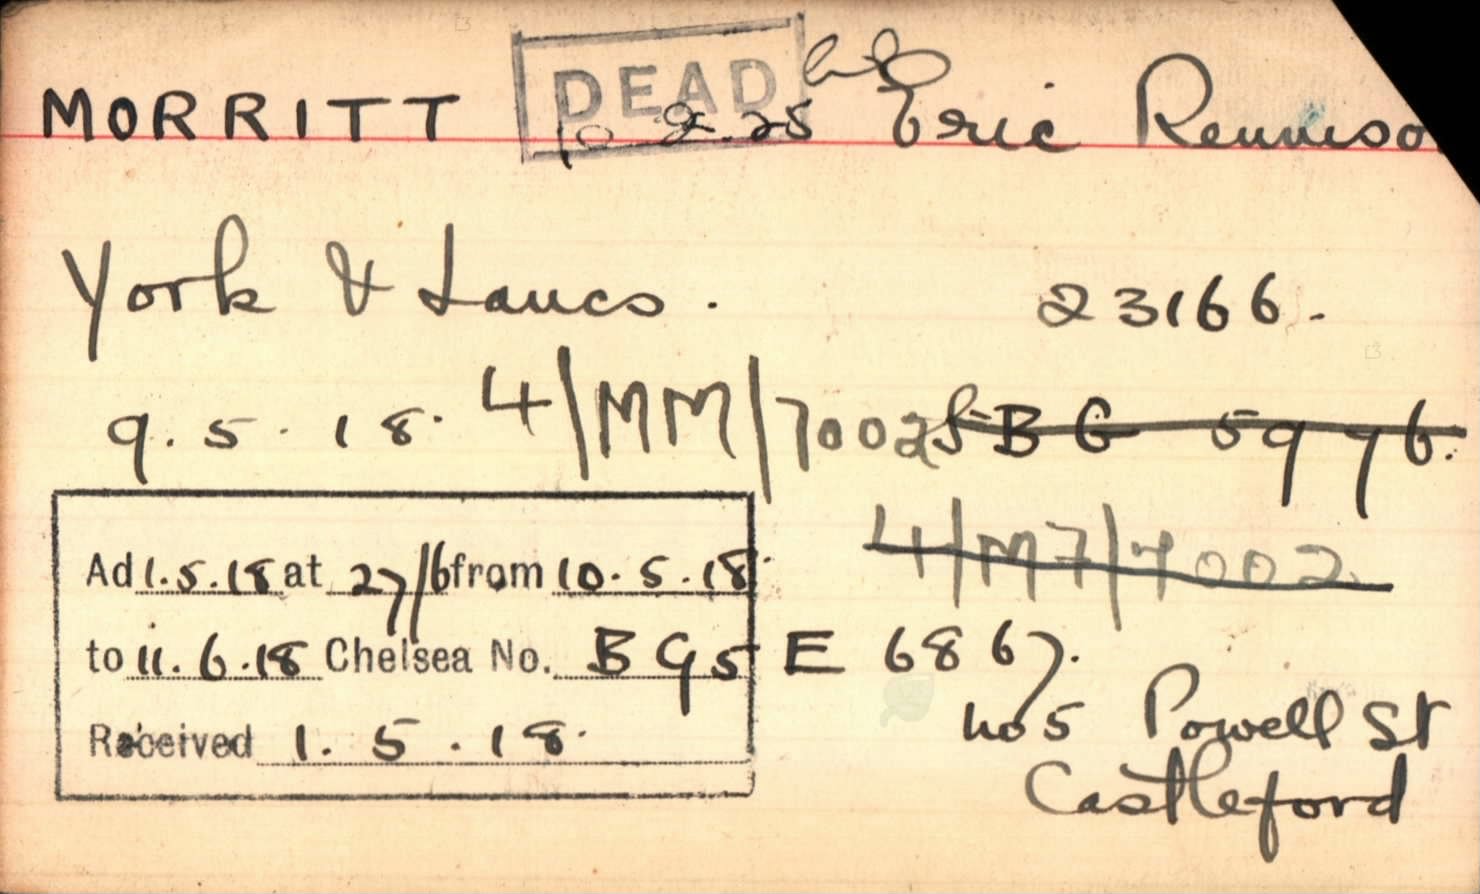 MORRITT DEAD Eric Rennison
10.2.25
York & Lancs. 23166.
9.5.18. 4/MM/7002 BG 5976.
4/M7/7002
Ad 1.5.18 at 27/6 from 10.5.18.
to 11.6.18 Chelsea No. B G5 E 6867.
Received 1.5.18.
no 5 Powell St
Castleford